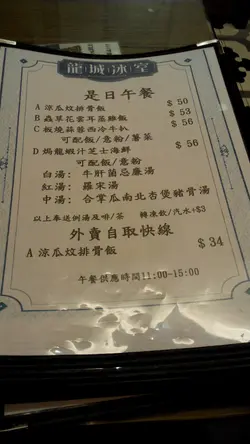 龍城冰室
是日午餐
A 涼瓜炆排骨飯 $50
B 蟲草花雲耳蒸雞飯 $53
C 板燒蒜蓉西冷牛扒 $56
可配飯/意粉/薯菜
D 焗龍蝦汁芝士海鮮 $56
可配飯/意粉
白湯: 牛肝菌忌廉湯
紅湯: 羅宋湯
中湯: 合掌瓜南北杏煲豬骨湯
以上奉送例湯及啡/茶 轉凍飲/汽水+$3
外賣自取快線
A 涼瓜炆排骨飯 $34
午餐供應時間11:00-15:00